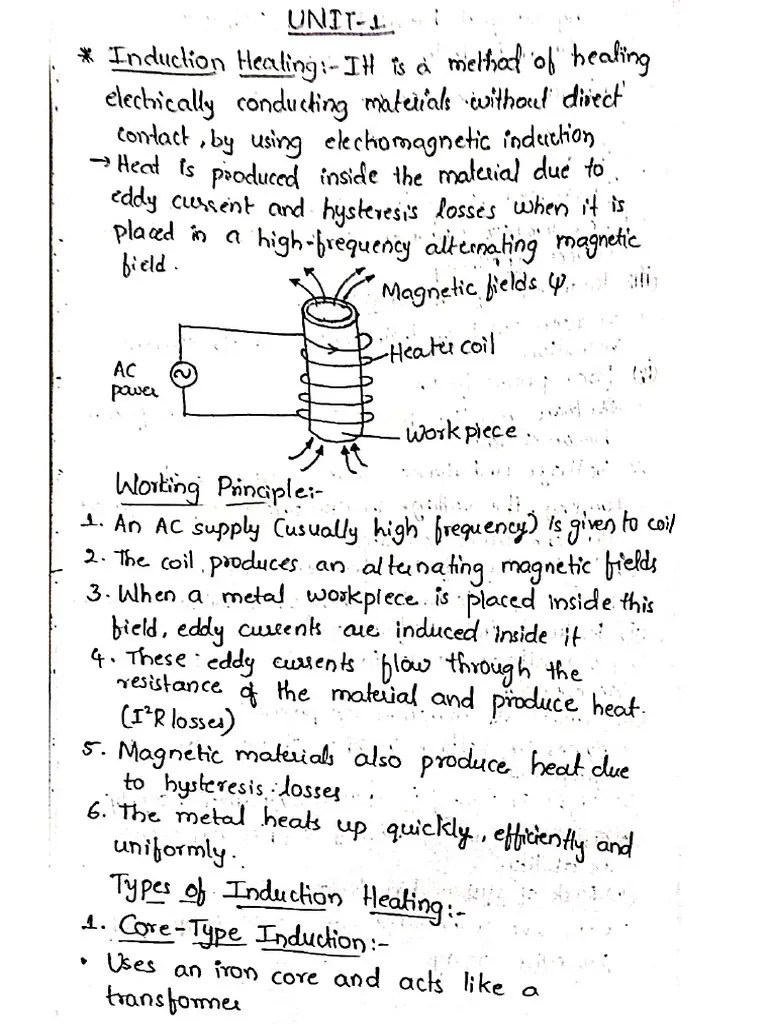 UNIT-1
* Induction Heating:- IH is a method of heating
electrically conducting materials without direct
contact, by using electromagnetic induction
→ Heat is produced inside the material due to
eddy current and hysteresis losses when it is
placed in a high-frequency alternating magnetic
field.
Magnetic fields φ.
Heater coil
AC
power
Workpiece.
Working Principle:-
1. An AC supply (usually high frequency) is given to coil
2. The coil produces an alternating magnetic fields
3. When a metal workpiece is placed inside this
field, eddy currents are induced inside it
4. These eddy currents flow through the
resistance of the material and produce heat.
(I²R losses)
5. Magnetic materials also produce heat due
to hysteresis losses
6. The metal heats up quickly, efficiently and
uniformly.
Types of Induction Heating:-
1. Core-Type Induction:-
• Uses an iron core and acts like a
transformer